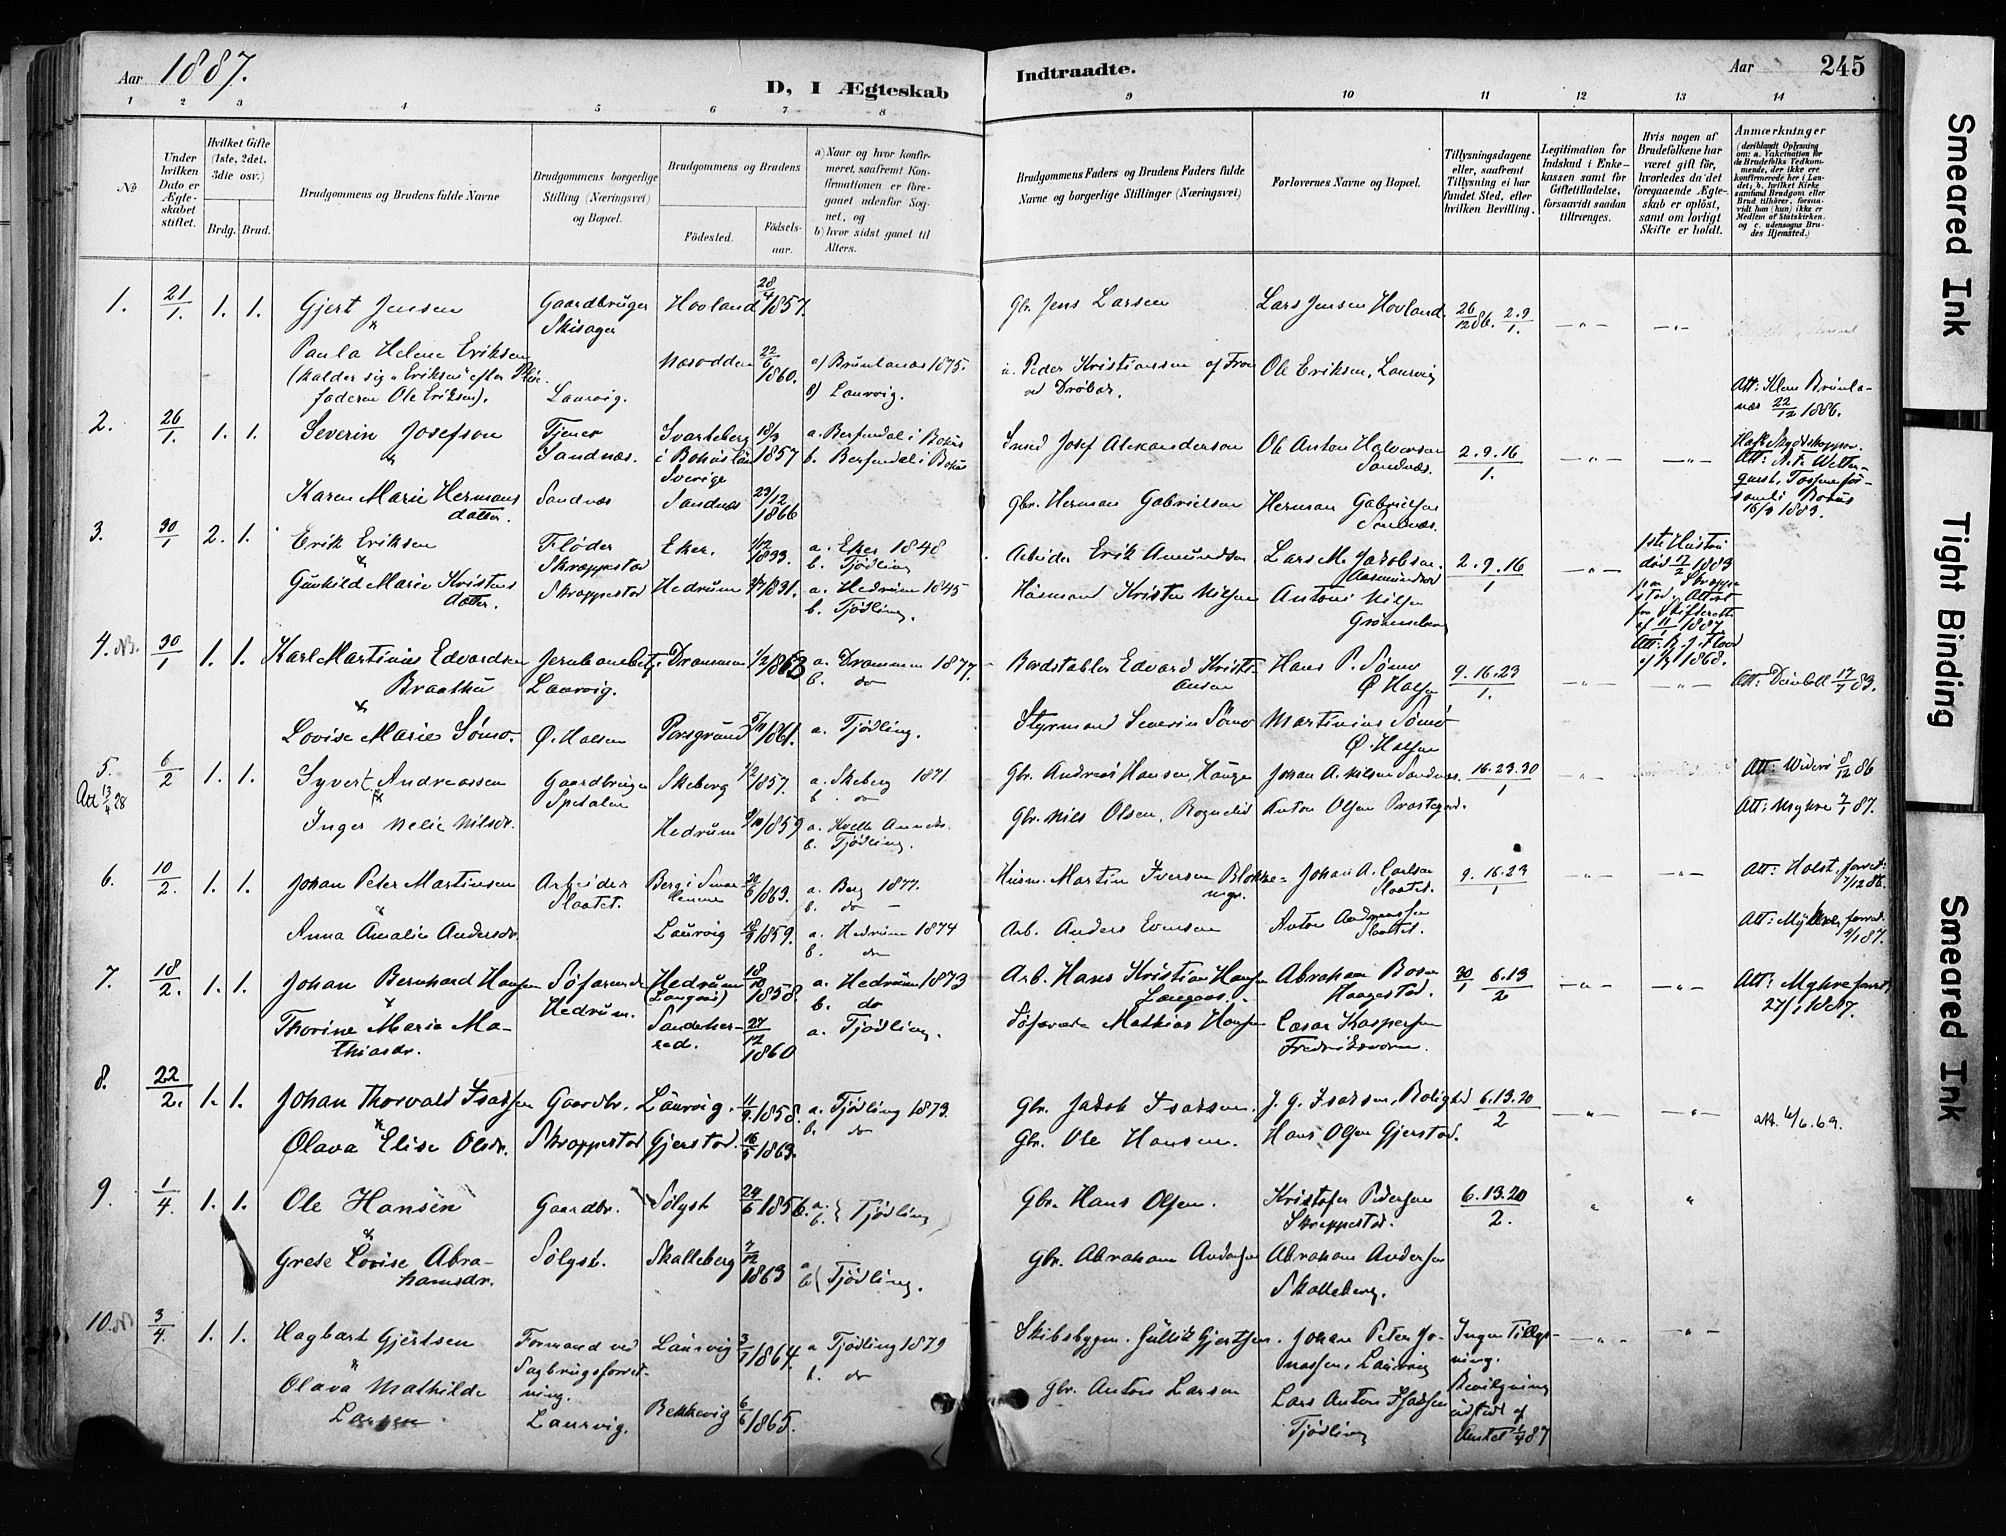 Aar 1887.
D, I Ægteskab
Indtraadte.
Aar 245
1 2 3 4 5 6 7 8 9 10 11 12 13 14
No
Under hvilken Dato er Ægteskabet stiftet.
Hvilket Gifte (1ste, 2det, 3die osv.)
Brdg. Brud.
Brudgommens og Brudens fulde Navne
Brudgommens borgerlige Stilling (Næringsvei) og Bopæl.
Brudgommens og Brudens
Födested. Födselsaar.
a) Naar og hvor konfirmeret, saafremt Konfirmationen er foregaaet udenfor Sognet, og
b) hvor sidst gaaet til Alters.
Brudgommens Faders og Brudens Faders fulde Navne og borgerlige Stillinger (Næringsvei)
Forlovernes Navne og Bopæl.
Tillysningsdagene eller, saafremt Tillysning ei har fundet Sted, efter hvilken Bevilling.
Legitimation for Indskud i Enkekassen samt for Giftetilladelse, forsaavidt saadan tiltrænges.
Hvis nogen af Brudefolkene har været gift för, hvorledes da det foregaaende Ægteskab er oplöst, samt om lovligt Skifte er holdt.
Anmærkninger
(deriblandt Oplysning om: a. Vakcination for de Brudefolks Vedkommende, der ikke ere konfirmerede her i Landet; b. hvilket Kirkesamfund Brudgom eller Brud tilhörer, forsaavidt han (hun) ikke er Medlem af Statskirken. og c. udensogns Brudes Hjemsted.)
1. 21/1. 1. 1. Gjert Jensen Gaardbruger Skisager Hovland 28/4 1857. Gbr. Jens Larsen Lars Jensen Hovland. 26/12 86. 2.9/1.
Paula Helene Eriksen (kalder sig "Eriksen" efter Pleiefaderen Ole Eriksen). Laurvig. Næsodden 22/6 1860. a) Brunlanæs 1875. b) Laurvig. Peder Kristiansen af Fron ved Drøbak. Ole Eriksen, Laurvig
Att: Klem Brunlanæs 22/12 1886.
2. 26/1. 1. 1. Severin Josefson Tjener Sandnæs. Svarteborg i Bohuslän Sverige 1857 Josef Alexanderson Ole Anton Halvorsen Sandnæs. 2.9.16/1
Karen Marie Hermansdatter. Sandnæs Sandnæs 23/12 1866 Gbr. Herman Gabrielsen Herman Gabrielsen
3. 30/1 2. 1. Erik Eriksen Fløder Skræppestad Eker. 1833. a. Eker 1848 b. Tjødling Arbeider Erik Amundsen Lars M. Jakobsen 2.9.16/1
Gunhild Marie Kristensdatter. Skræppestad Hedrum 1831. a. Hedrum 1845 b. Tjødling. Husmand Kristen Nilsen Antoni Nilsen
4. NB. 30/1 1. 1. Karl Martinius Edvardsen Braathen Laurvig. Drammen 1/2 1863 a. Drammen 1877. b. do Edvard Kristiansen Hans P. Sømo Ø. Halsen 9.16.23/1 17/7 83.
Lovise Marie Sømo. Ø. Halsen Porsgrund 1861. a. Tjødling. Styrmand Severin Sømo Martinius Sømo Ø. Halsen
5. 6/2 1. 1. Syvert Andreassen Gaardbruger Spetalen Skeberg 1/2 1857. a. Skeberg 1871. b. do Gbr. Andreas Hansen Hauge Johan A. Nilsen Sandnæs. 16.23.30/1 8/12 86
Att 13/4 28 Inger Helie Nilsdr. Hedrum 1859 b. Tjødling. Gbr. Nils Olsen, Anton Olsen Att: Myhre 7/1 87.
6. 10/2. 1. 1. Johan Peter Martinsen Arbeider Slaatet. Berg i Smaalenene 1863. a. Berg 1877. b. do Husm. Martin Iversen Johan A. Carlsen Slaatet. 9.16.23/1 Att: Holst, forret:
Anna Amalie Andersdr. Laurvig 1859. a. Hedrum 1874 b. do Arb. Anders Evensen Anton Andreassen Slaatet. Att: Myhre, forret.
7. 18/2. 1. 1. Johan Bernhard Hansen Søfarende Hedrum. Hedrum 18/10 1858. a. Hedrum 1873 b. do Arb. Hans Kristian Hansen Abraham Haagestad. 30/1 6.13/2 Att: Myhre forret. 27/1 1887.
Thorine Marie Mathiasdr. Sandeherred. 27/12 1860 a. Tjødling. Søfarende Mathias Hansen Cæsar Kaspersen
8. 22/2. 1. 1. Johan Thorvald Isaksen Gaardbr. Laurvig. 11/9 1858. a. Tjødling 1873. b. do Gbr. Jakob Isaksen. J. G. Isaksen, Bolighed 6.13.20/2
Olava Elise Olsdr. Skræppestad Gjerstad. 16/5 1863. Gbr. Ole Hansen. Hans Olsen Gjerstad.
9. 1/4. 1. 1. Ole Hansen Gaardbr. Sølyst 24/6 1856. a. b. Tjødling Gbr. Hans Olsen. Kristofer Pedersen Skræppestad. 6.13.20/2.
Grete Lovise Abrahamsdr. Sølyst. Skalleberg 7/12 1863 a b Tjødling. Gbr. Abraham Andersen Abraham Andersen Skalleberg.
10. NB 3/4. 1. 1. Hagbart Gjertsen Formand ved Sagbrugsforretning. Laurvig. Laurvig 3/7 1864. a Tjødling 1879 b. do Skibsbygm. Gullik Gjertsen. Johan Peter Jonassen, Laurvig Ingen Tillysning. Bevilgning udstedt af Amtet 1/4 87
Olava Mathilde Larsen Bekkevig 6/6 1865. Gbr. Anton Larsen Lars Anton Isaksen Tjødling
Smeared Ink
Tight Binding
Smeared Ink